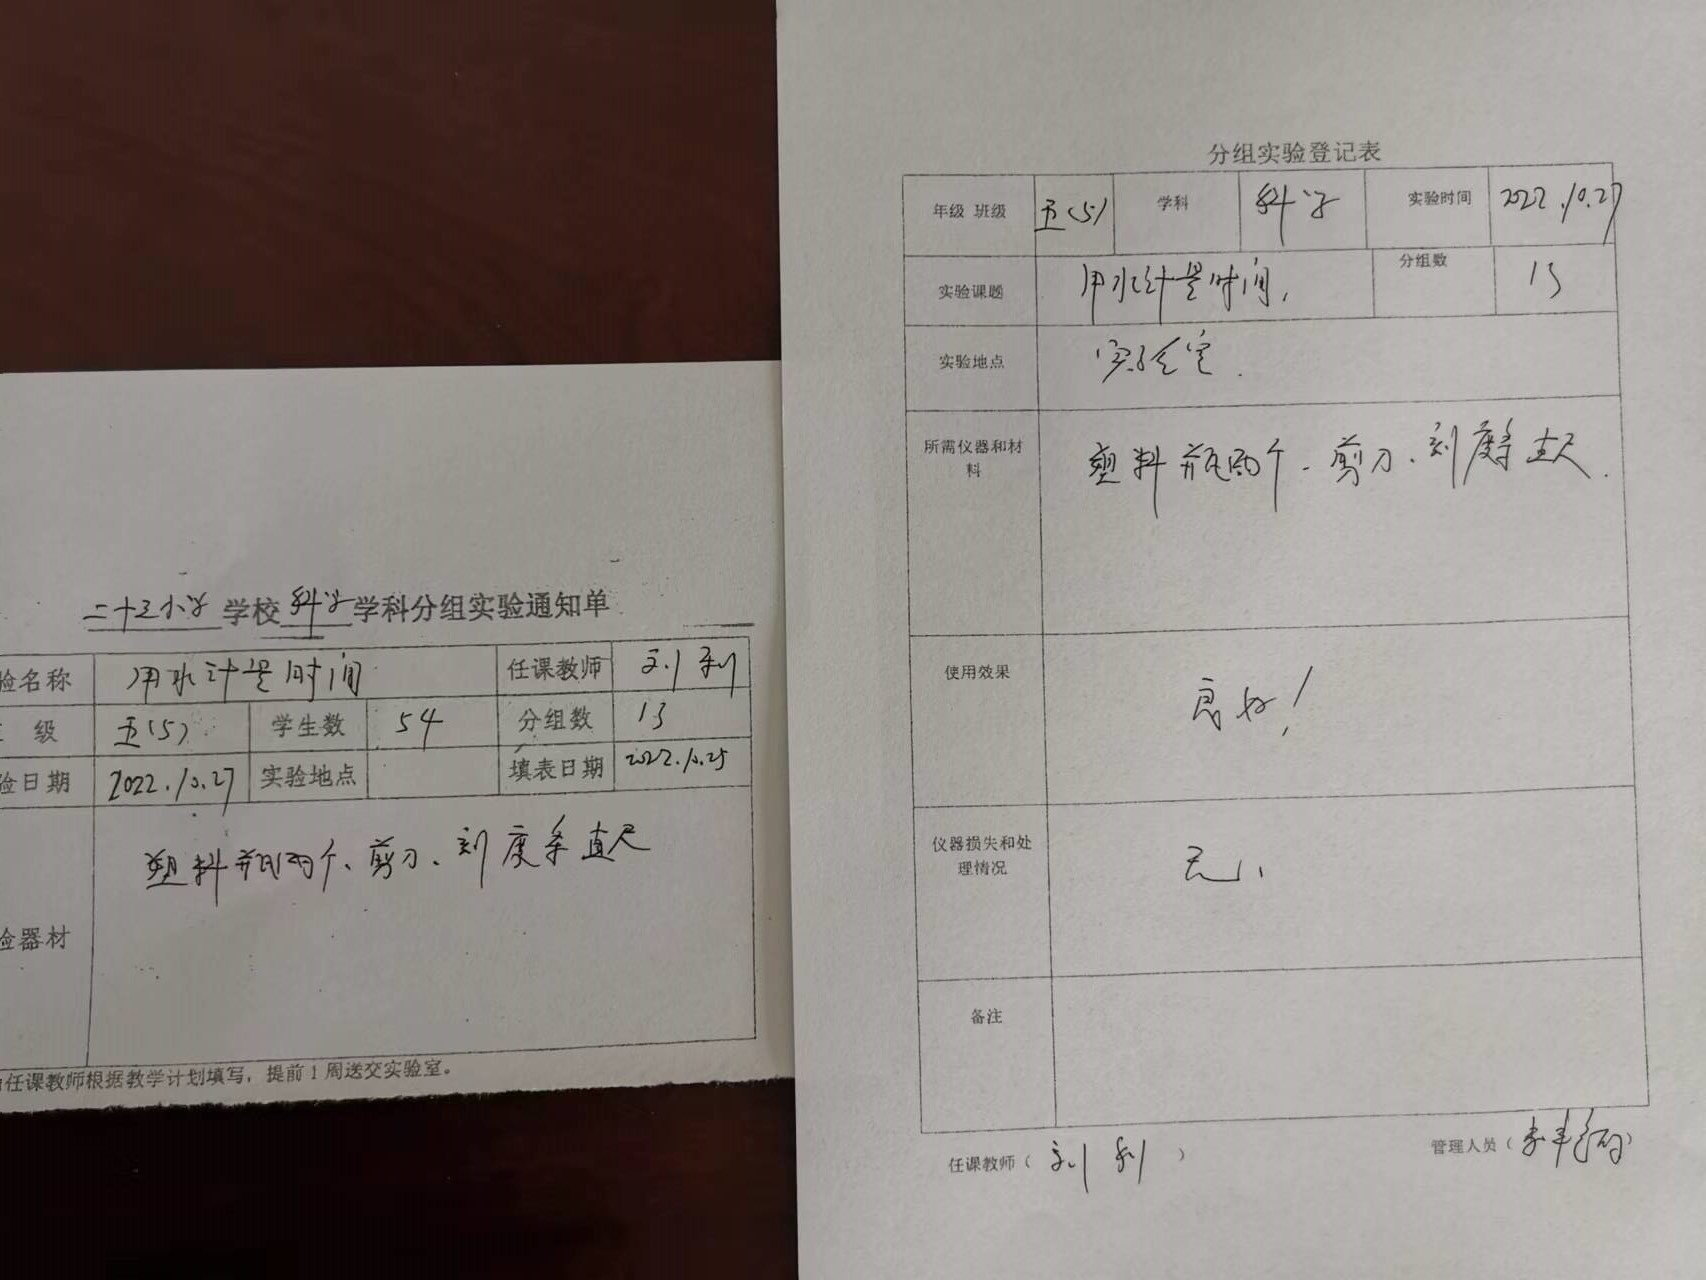 二十三小学 学校 科学 学科分组实验通知单
验名称 用水计量时间 任课教师 刘利
级 五(5) 学生数 54 分组数 13
验日期 2022.10.27 实验地点 填表日期 2022.10.25
塑料瓶两个、剪刀、刻度条 直尺
验器材
任课教师根据教学计划填写，提前1周送交实验室。
分组实验登记表
年级 班级 五(5) 学科 科学 实验时间 2022.10.27
实验课题 用水计量时间. 分组数 13
实验地点 实验室.
所需仪器和材料 塑料瓶两个、剪刀、刻度条 直尺.
使用效果 良好!
仪器损失和处理情况 无.
备注
任课教师（刘利） 管理人员（